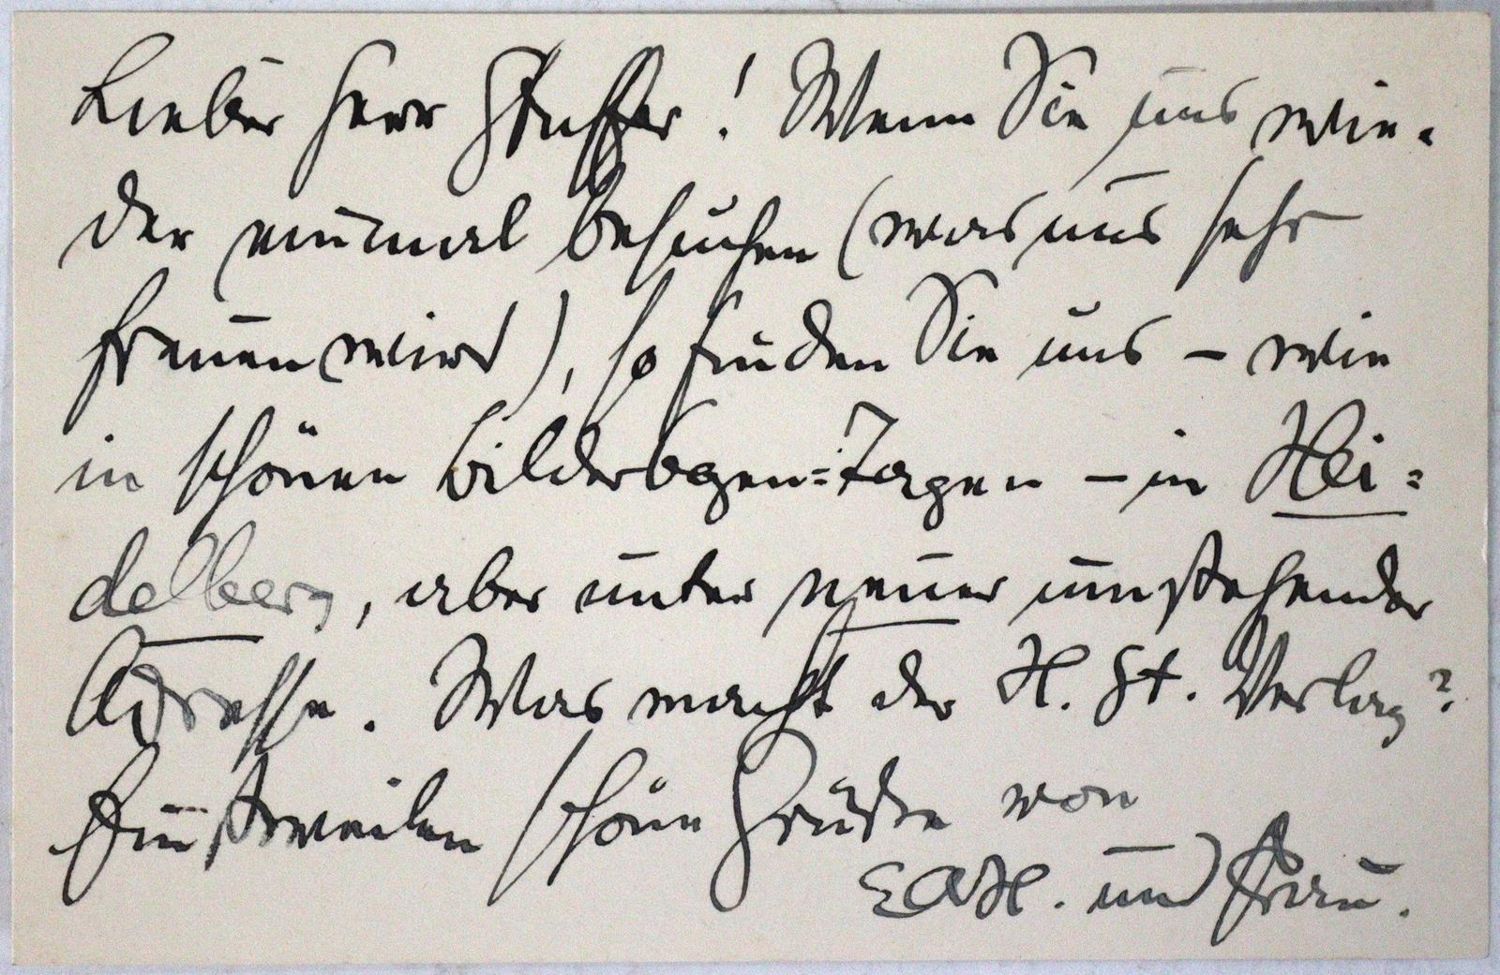 Lieber Herr Stuffer! Wenn Sie uns wie-
der einmal besuchen (was uns sehr
freuen wird), so finden Sie uns – wie
in schönen Bilderbogen=Tagen – in Hei=
delberg, aber unter neuer umstehender
Adresse. Was macht der H. St. Verlag?
Einstweilen schöne Grüße von
EOH. und Frau.